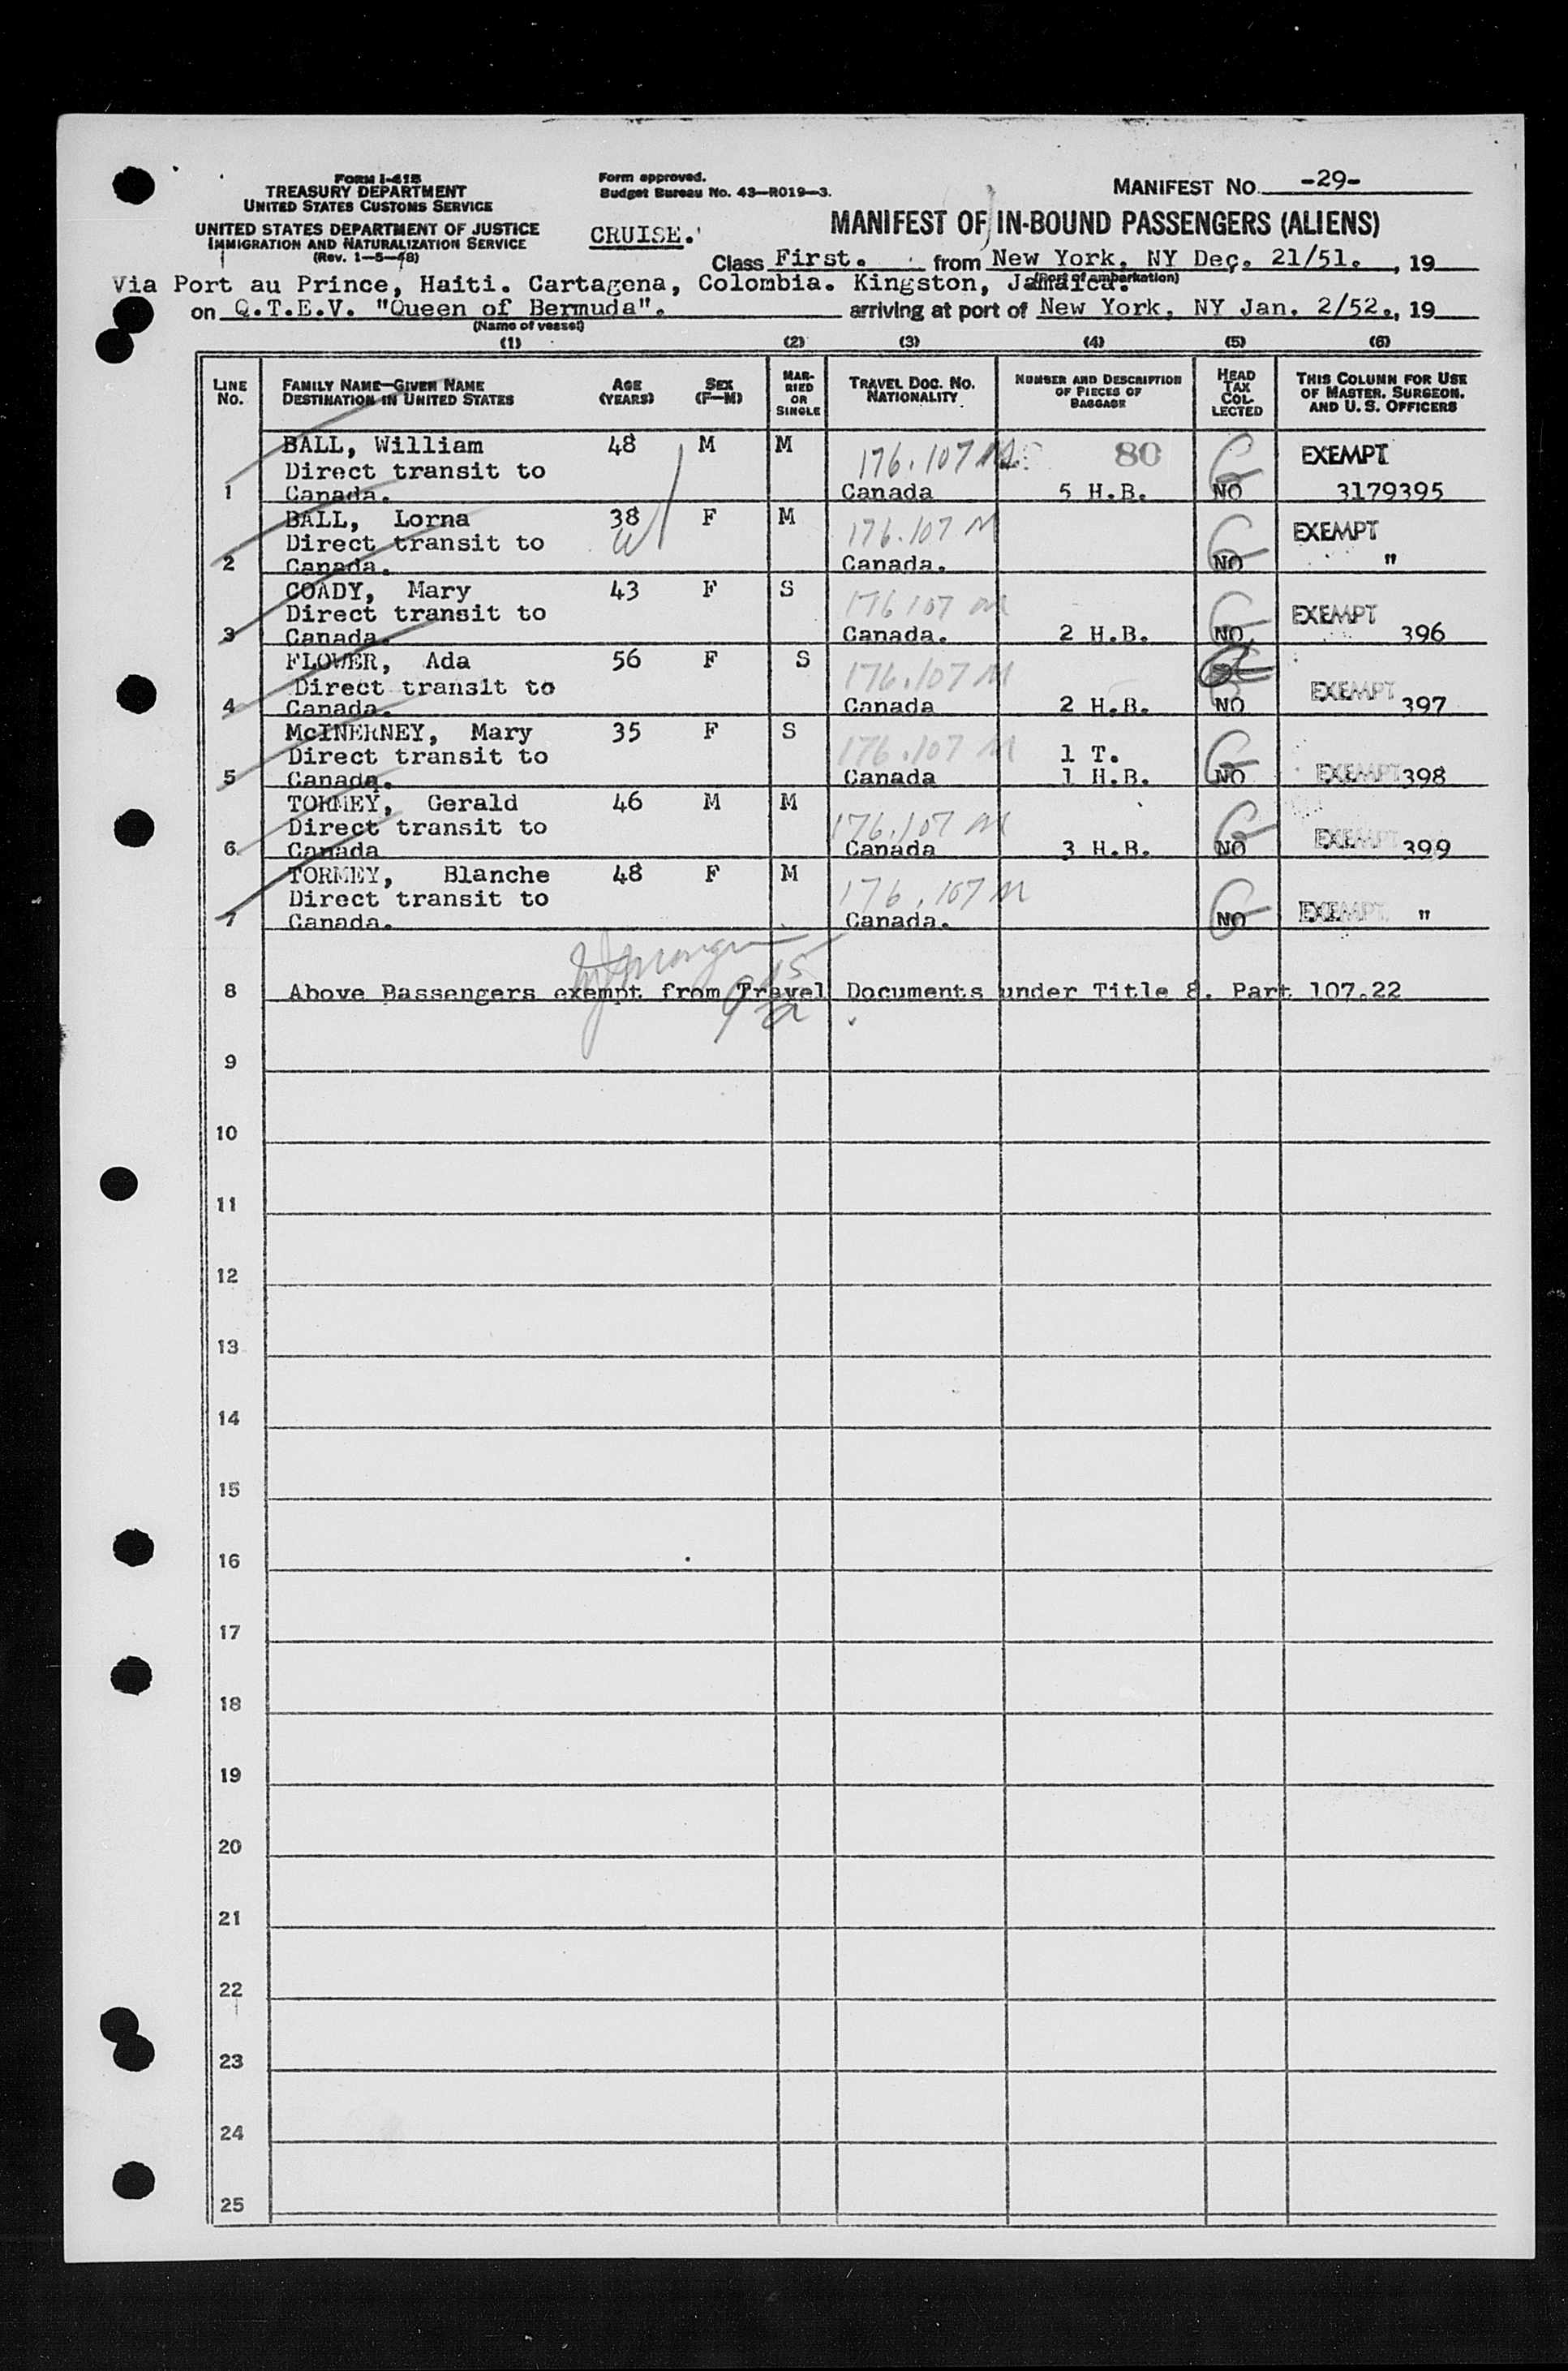 FORM I-418
TREASURY DEPARTMENT
UNITED STATES CUSTOMS SERVICE
UNITED STATES DEPARTMENT OF JUSTICE
IMMIGRATION AND NATURALIZATION SERVICE
(Rev. 1-5-48)
Form approved.
Budget Bureau No. 43-R019-3.
CRUISE.
MANIFEST NO. -29-
MANIFEST OF IN-BOUND PASSENGERS (ALIENS)
Class First. from New York, NY Dec. 21/51. , 19
(Port of embarkation)
Via Port au Prince, Haiti. Cartagena, Colombia. Kingston, Jamaica.
on Q.T.E.V. "Queen of Bermuda". arriving at port of New York, NY Jan. 2/52., 19
(Name of vessel)
(1) (2) (3) (4) (5) (6)
LINE No. FAMILY NAME—GIVEN NAME DESTINATION IN UNITED STATES AGE (YEARS) SEX (F—M) MARRIED OR SINGLE TRAVEL DOC. NO. NATIONALITY NUMBER AND DESCRIPTION OF PIECES OF BAGGAGE HEAD TAX COLLECTED THIS COLUMN FOR USE OF MASTER, SURGEON, AND U. S. OFFICERS
BALL, William 48 M M 176.107 M 80 EXEMPT
Direct transit to
1 Canada. Canada 5 H.B. NO 3179395
BALL, Lorna 38 F M 176.107 M EXEMPT
Direct transit to
2 Canada. Canada. NO "
COADY, Mary 43 F S 176 107 M EXEMPT
Direct transit to
3 Canada. Canada. 2 H.B. NO 396
FLOWER, Ada 56 F S 176.107 M
Direct transit to EXEMPT
4 Canada. Canada 2 H.B. NO 397
McINERNEY, Mary 35 F S 176.107 M
Direct transit to 1 T.
5 Canada. Canada 1 H.B. NO EXEMPT 398
TORMEY, Gerald 46 M M
Direct transit to 176.107 M
6 Canada Canada 3 H.B. NO EXEMPT 399
TORMEY, Blanche 48 F M 176.107 M
Direct transit to
7 Canada. Canada. NO EXEMPT "
8 Above Passengers exempt from Travel Documents under Title 8. Part 107.22
9
10
11
12
13
14
15
16
17
18
19
20
21
22
23
24
25